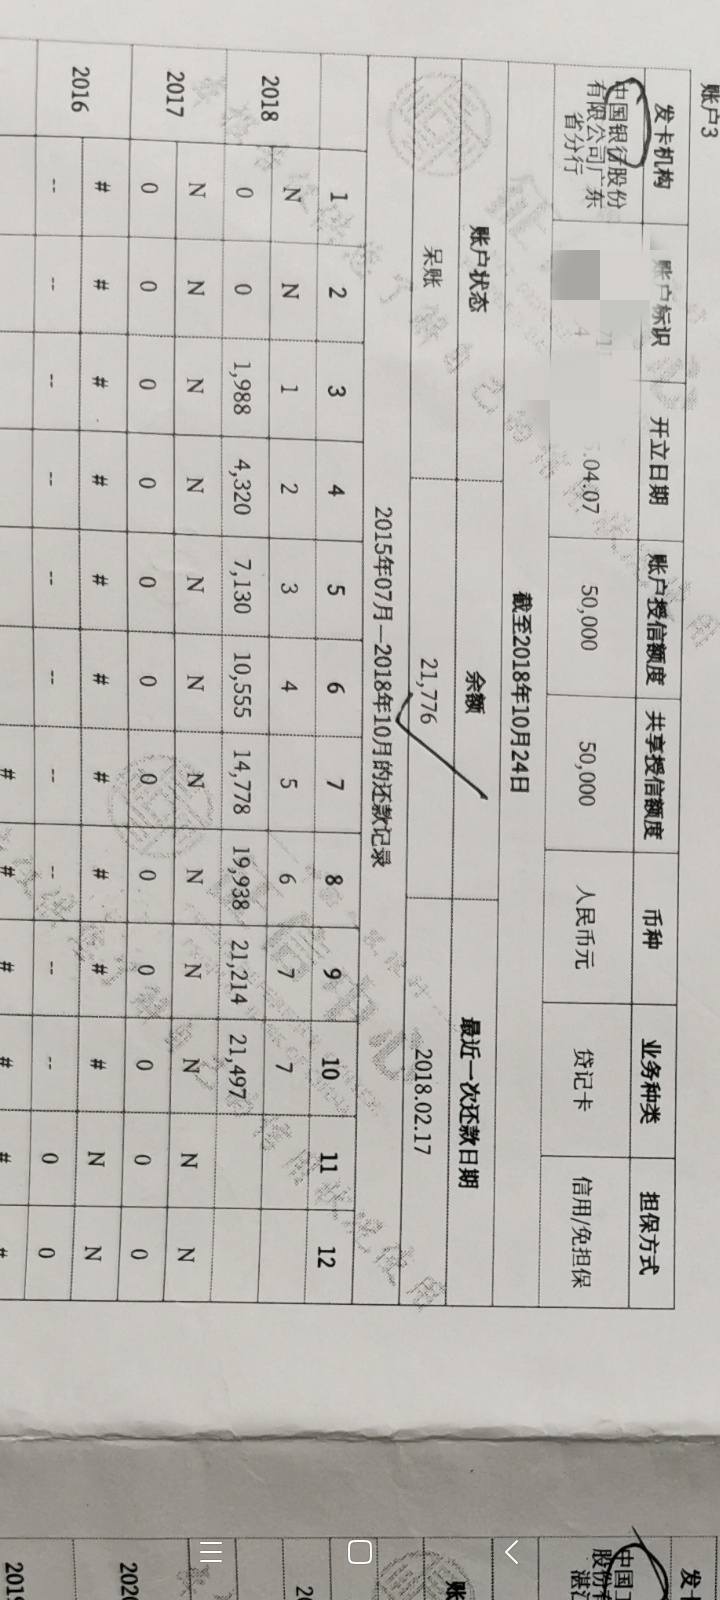 账户3
发卡机构 账户标识 开立日期 账户授信额度 共享授信额度 币种 业务种类 担保方式
中国银行股份
有限公司广东
省分行
.04.07 50,000 50,000 人民币元 贷记卡 信用/免担保
截至2018年10月24日
账户状态 余额 最近一次还款日期
呆账 21,776 2018.02.17
2015年07月—2018年10月的还款记录
1 2 3 4 5 6 7 8 9 10 11 12
2018 N N 1 2 3 4 5 6 7 7
0 0 1,988 4,320 7,130 10,555 14,778 19,938 21,214 21,497
2017 N N N N N N N N N N N N
0 0 0 0 0 0 0 0 0 0 0 0
2016 # # # # # # # # # # N N
-- -- -- -- -- -- -- -- -- -- 0 0
# # # # # #
发卡
中国工
股份有
湛江
账
20
2020
2019